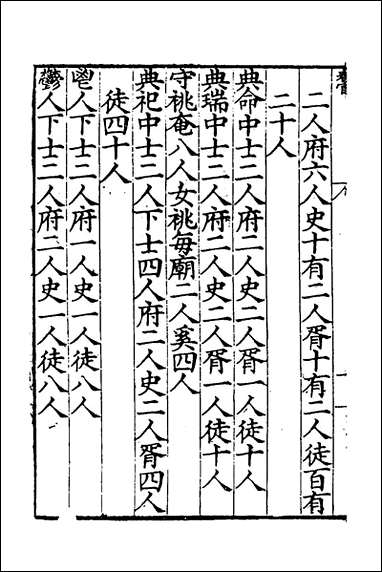 二人府六人史十有二人胥十有二人徒百有
二十人
典命中士二人府二人史二人胥一人徒十人
典瑞中士二人府二人史二人胥一人徒十人
守祧奄八人女祧毎廟二人奚四人
典祀中士二人下士四人府二人史二人胥四人
徒四十人
鬯人下士二人府一人史一人徒八人
鬱人下士二人府二人史一人徒八人